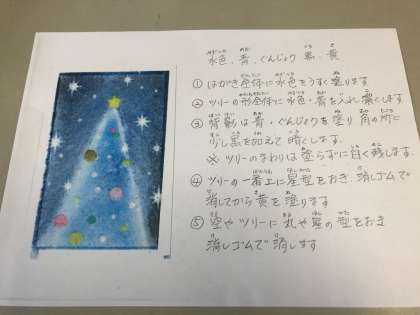 水色、青、ぐんじょう 黒、黄
① はがき全体に水色をうすく塗ります
② ツリーの形全体に水色・青を入れ、濃くします
③ 背影は青・ぐんじょうを塗り 角の所に
少し黒を加えて 暗くします。
※ ツリーのまわりは塗らずに白く残します
④ ツリーの一番上に星型をおき、消しゴムで
消してから黄を塗ります
⑤ 空やツリーに丸や星の型をおき
消しゴムで消します